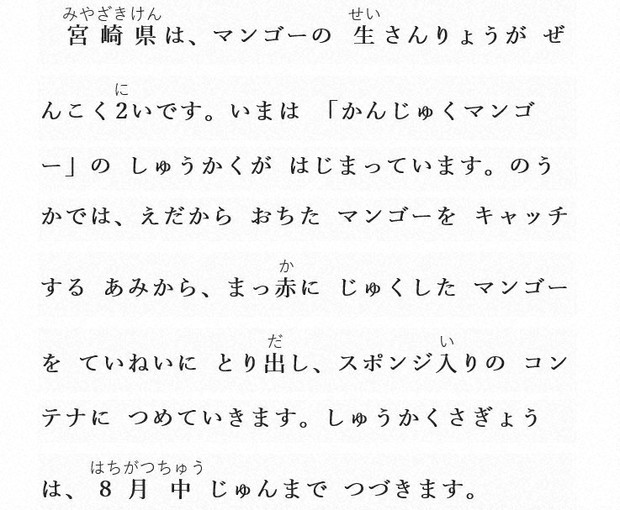 みやざきけん せい
宮崎県は、マンゴーの 生さんりょうが ぜ
に
んこく2いです。いまは 「かんじゅくマンゴ
ー」の しゅうかくが はじまっています。のう
かでは、えだから おちた マンゴーを キャッチ
か
する あみから、まっ赤に じゅくした マンゴー
だ い
を ていねいに とり出し、スポンジ入りの コン
テナに つめていきます。しゅうかくさぎょう
はちがつちゅう
は、8月中じゅんまで つづきます。